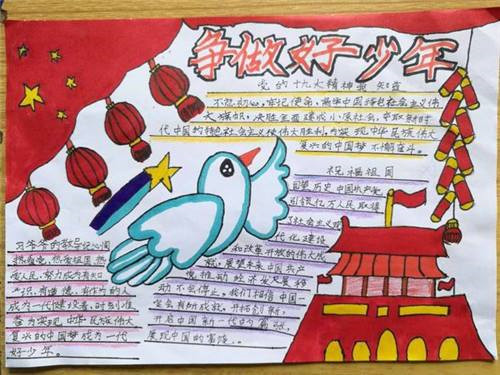 争做好少年
党的十九大精神我知道
不忘初心,牢记使命,高举中国特色社会主义伟
大旗帜,决胜全面建成小康社会,夺取新时
代中国特色社会主义伟大胜利,为实现中华民族伟大
复兴的中国梦不懈奋斗。
祝福祖国
回望历史中国共产党
引领亿万人民取得
了社会主义现
代化建设
和改革开放的伟大成
就,展望未来中国共产
党推动经济发展移
动不会停止,我们相信中国一
定会有新成就,开拓创新,
开启中国新一代的篇章,
展现中国的富强。
习爷爷的教导记心间
热爱党,热爱祖国,热
爱人民,努力成为有知
识,有道德,有作为的人
成为一代建设者,时刻准
备为实现中华民族伟大
复兴的中国梦成为一代
好少年。